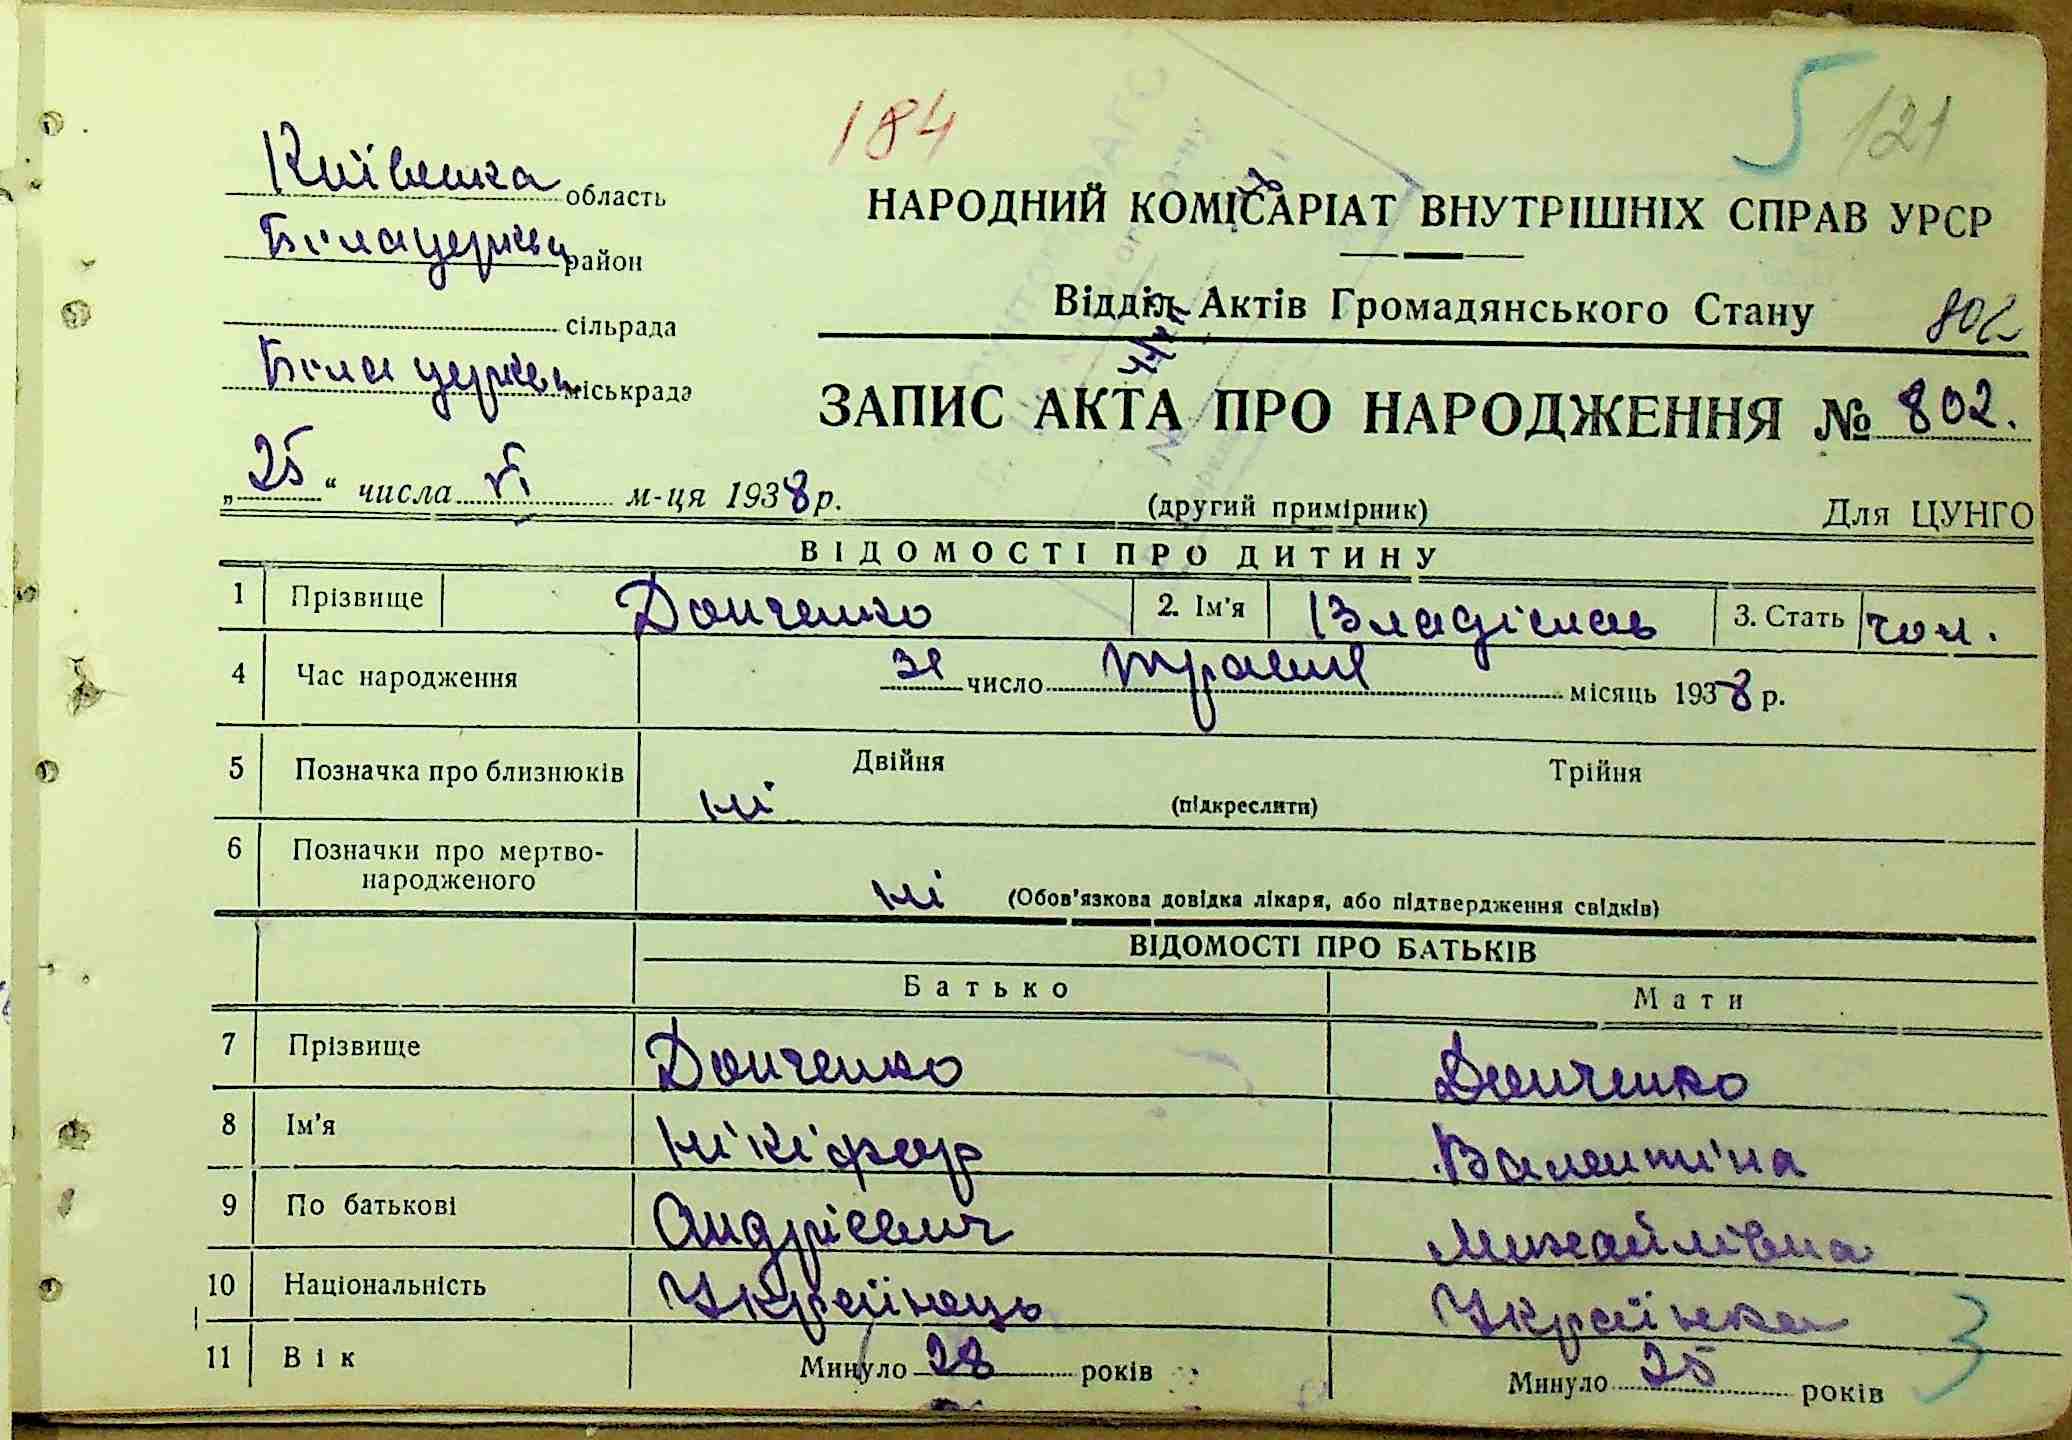 184
5 121
Київська область
Білацерква район
сільрада
Біла церква міськрада
НАРОДНИЙ КОМІСАРІАТ ВНУТРІШНІХ СПРАВ УРСР
Відділ Актів Громадянського Стану
802
ЗАПИС АКТА ПРО НАРОДЖЕННЯ № 802.
„25“ числа VI м-ця 1938 р.
(другий примірник)
Для ЦУНГО
ВІДОМОСТІ ПРО ДИТИНУ
1 Прізвище Донченко 2. Ім'я Владіслав 3. Стать чол.
4 Час народження 31 число травня місяць 1938 р.
5 Позначка про близнюків ні Двійня Трійня
(підкреслити)
6 Позначки про мертво-
народженого ні (Обов'язкова довідка лікаря, або підтвердження свідків)
ВІДОМОСТІ ПРО БАТЬКІВ
Батько Мати
7 Прізвище Донченко Донченко
8 Ім'я Нікіфор Валентіна
9 По батькові Андрієвич Михайлівна
10 Національність Українець Українка
3
11 Вік Минуло 28 років Минуло 25 років